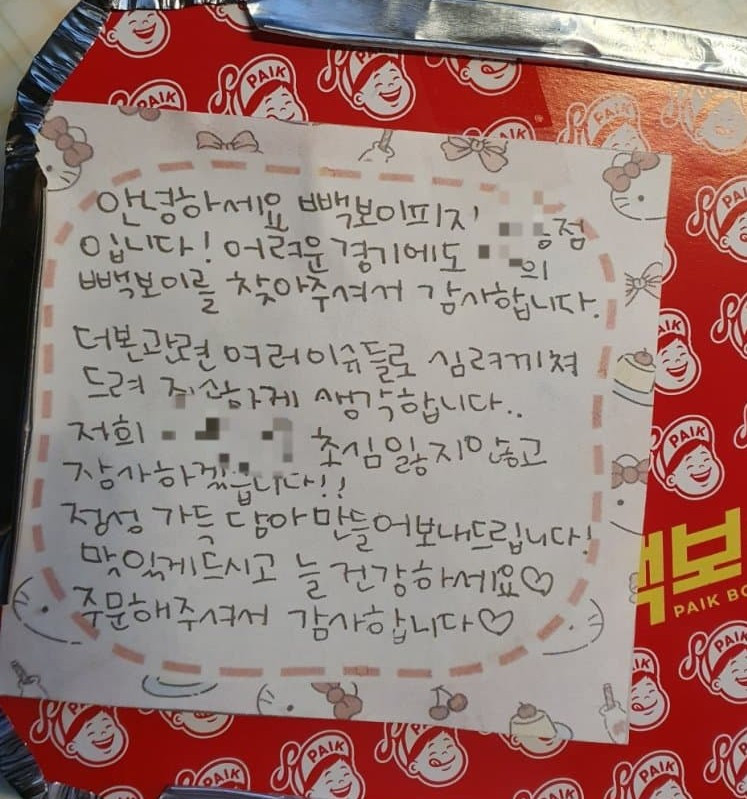 안녕하세요 빽보이피자 점
입니다! 어려운 경기에도 의
빽보이를 찾아주셔서 감사합니다.
더본관련 여러이슈들로 심려끼쳐
드려 죄송하게 생각합니다..
저희 초심잃지않고
장사하겠습니다!!
정성 가득 담아 만들어보내드립니다!
맛있게드시고 늘 건강하세요♡
주문해주셔서 감사합니다♡
PAIK
PAIK
PAIK
PAIK
PAIK
PAIK
백보
PAIK BO
PAIK
PAIK
PAIK
PAIK